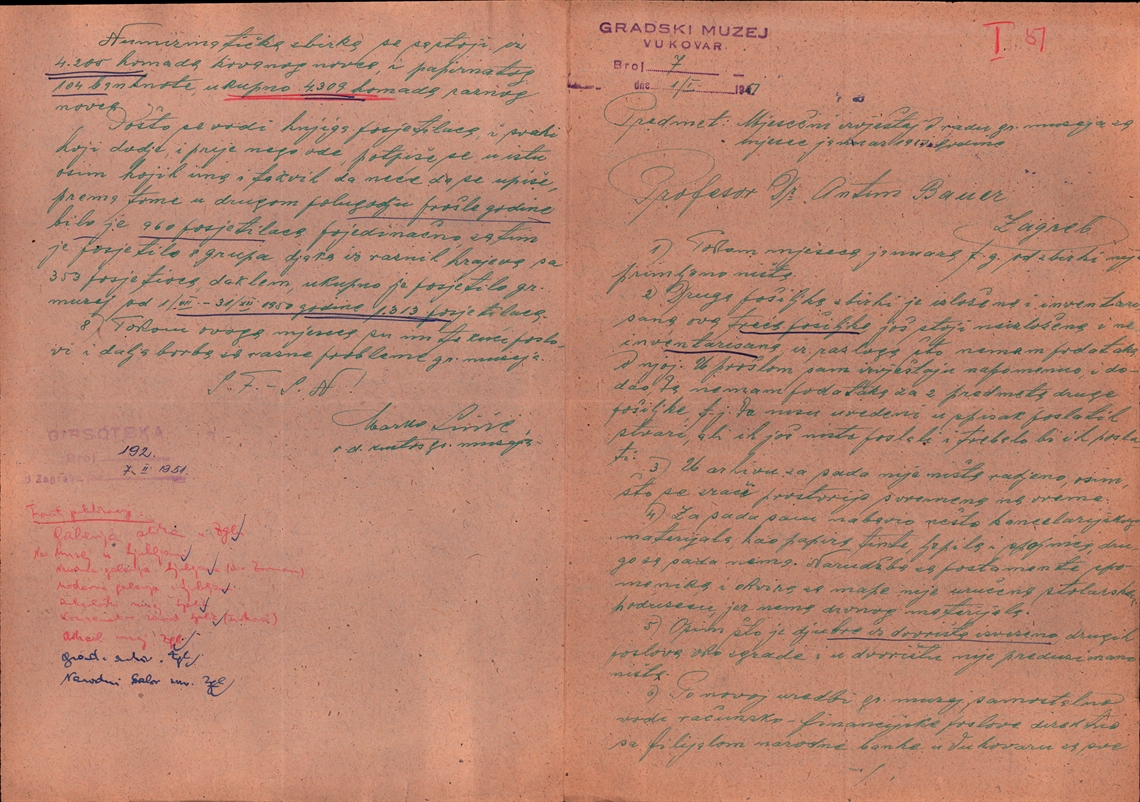 Numizmatička zbirka se sastoji iz
4.200 komada kovanog novca, i papirnatog
104 banknote, ukupno 4309 komada raznog
novca
Pošto se vodi knjiga posjetilaca, i svaki
koji dodje, i prije nego ode, potpiše se u istu
osim kojih ima i takvih da neće da se upiše,
prema tome u drugom polugodju prošle godine
bilo je 960 posjetilaca pojedinačno, zatim
je posjetilo 8 grupa djaka iz raznih krajeva sa
353 posjetioca, daklem, ukupno je posjetilo gr.
muzej od 1/VII - 31/XII 1950 godine 1.313 posjetilaca.
8) Tokom ovoga mjeseca su
vi i dalja borba za razne probleme gr. muzeja.
S. F. - S. N!
Marko
v. d. kustos gr. muzeja
GIPSOTEKA
Broj 192
7. II 1951
U Zagrebu
Galerija Zgb
muzej u Ljubljani
galerija Ljubljana
Moderna galerija Ljubljana
muzej Zgb
zavod
muzej Zgb.
Zgb
Narodni Zgb
GRADSKI MUZEJ
VUKOVAR
Broj 7
dne 1/II 1947
I 51
Predmet: Mjesečni izvještaj o radu gr. muzeja za
mjesec januar godine
Profesor Dr. Antun Bauer
Zagreb
1) Tokom mjeseca januara t. g. od zbirki nije
primljeno ništa.
2) Druga pošiljka zbirki je izložena i inventari-
sana ova treća pošiljka još stoji neizložena i ne
inventarisana iz razloga što nemam podataka
o njoj. U prošlom sam izvještaju napomenuo, i do-
dao da nemam podataka za 2 predmeta druge
pošiljke, t.j. da nisu uvedeni u spisak poslatih
stvari, ali ih još niste poslali i trebalo bi ih posla-
ti.
3) U arhivu za sada nije ništa radjeno, osim,
što se zrače prostorije s vremena na vreme.
4) Za sada sam nabavio nešto kancelarijskog
materijala kao papira tinte, ljepila, spojnica, dru-
go za sada nema. Narudžba za postamente spo-
menika i okvira za mape nije uručena stolarskom
poduzeću, jer nema drvnog materijala.
5) Osim što je djubre iz dvorišta izvezeno drugih
poslova oko zgrade i u dvorištu nije preduzimano
ništa.
6) Po novoj uredbi gr. muzej, samostalno
vodi računsko-financijske poslove direktno
sa filijalom narodne banke u Vukovaru za sve
./.